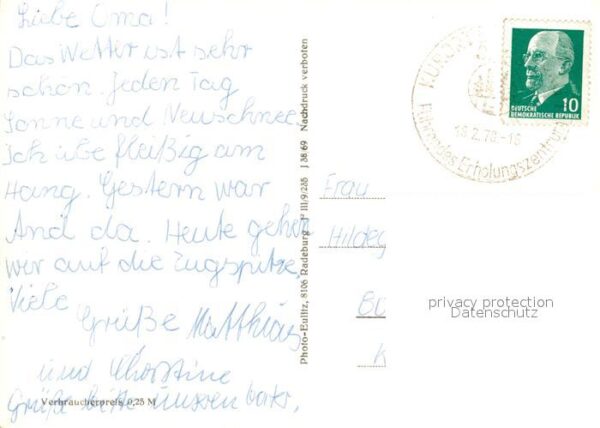 Liebe Oma!
Das Wetter ist sehr
schön. Jeden Tag
Sonne und Neuschnee.
Ich übe fleißig am
Hang. Gestern war
And da. Heute gehen
wir auf die Zugspitze.
Viele
Grüße Matthias
und Christine
Grüße bitte unseren
Verbraucherpreis 0,25 M
Photo-Eulitz, 8106 Radeburg III/9/235 J 38 69 Nachdruck verboten
DEUTSCHE
DEMOKRATISCHE REPUBLIK
10
Führendes Erholungszentrum
Frau
Hildeg
privacy protection
Datenschutz